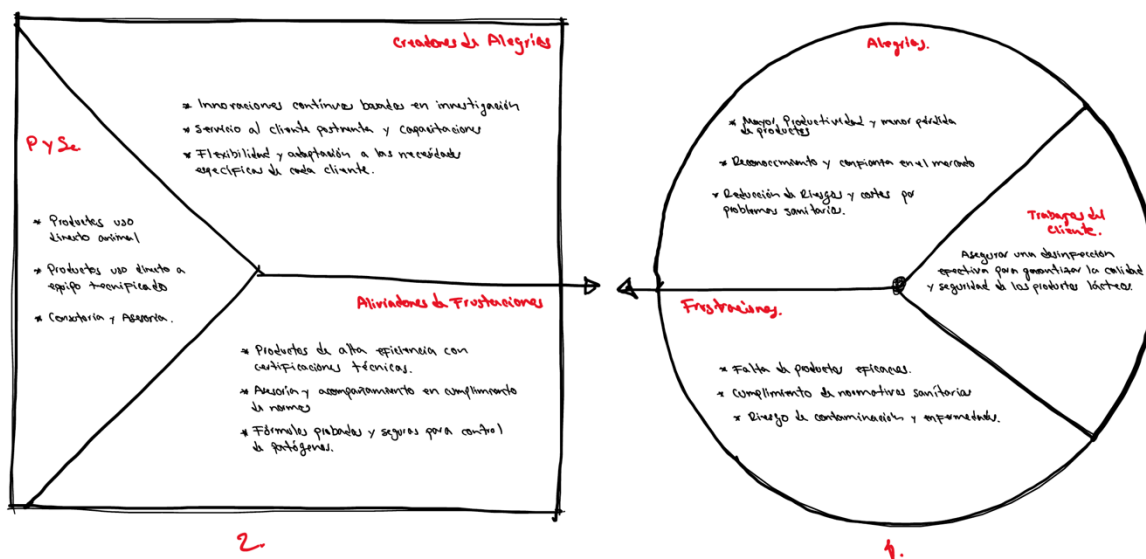 Creadores de Alegrías
* Innovaciones contínuas basadas en investigación
* Servicio al cliente postventa y capacitaciones
* Flexibilidad y adaptación a las necesidades
específicas de cada cliente.
P y Se
* Productos uso
directo animal
* Productos uso directo a
equipo tecnificado
* Consultoria y Asesoria.
Aliviadores de Frustaciones
* Productos de alta eficiencia con
certificaciones técnicas.
* Asesoría y acompañamiento en cumplimiento
de normas
* Fórmulas probadas y seguras para control
de patógenos.
2.
Alegrías.
* Mayor Productividad y menor pérdida
de productos
* Reconocimiento y confianza en el mercado
* Reducción de Riesgos y costes por
problemas sanitarios.
Trabajos del
Cliente.
Asegurar una desinfección
efectiva para garantizar la calidad
y seguridad de los productos lácteos.
Frustraciones.
* Falta de productos eficaces.
* Cumplimiento de normativas sanitarias
* Riesgo de contaminación y enfermedades.
1.